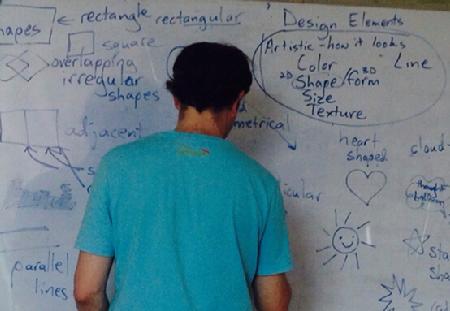 apes
rectangle rectangular
square
overlapping
irregular
shapes
adjacent
parallel
lines
metrical
icular
Design Elements
Artistic - how it looks
Color
Line
2D Shape/form 3D
Size
Texture
heart
shaped
cloud-
sta
sha